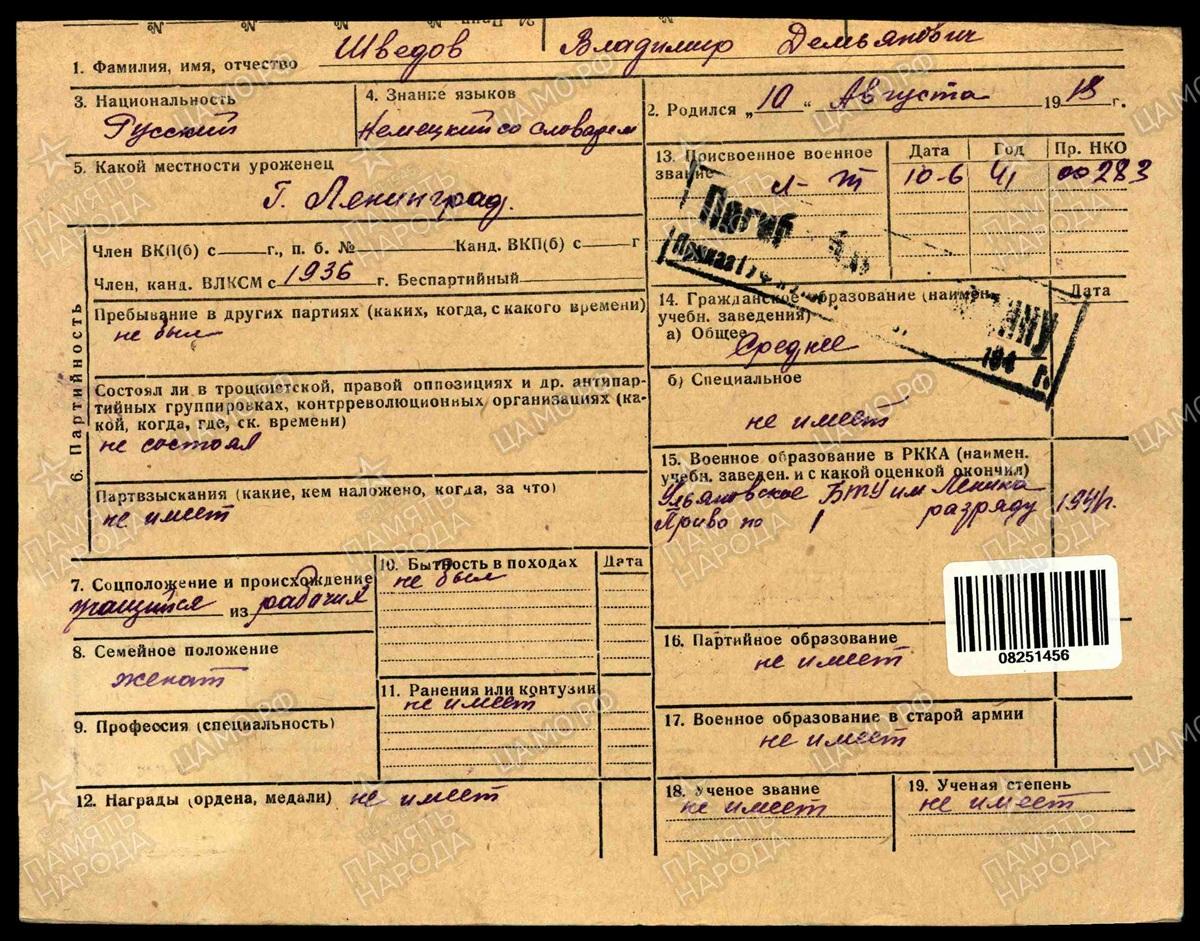 1. Фамилия, имя, отчество Шведов Владимир Демьянович
3. Национальность
Русский
4. Знание языков
Немецкий со словарем
2. Родился „10“ Августа 1918 г.
5. Какой местности уроженец
Г. Ленинград.
13. Присвоенное военное звание
Дата Год Пр. НКО
л-т 10-6 41 00283
Погиб
6. Партийность
Член ВКП(б) с г., п. б. № Канд. ВКП(б) с г
Член, канд. ВЛКСМ с 1936 г. Беспартийный
Пребывание в других партиях (каких, когда, с какого времени)
не был
Состоял ли в троцкистской, правой оппозициях и др. антипар-
тийных группировках, контрреволюционных организациях (ка-
кой, когда, где, ск. времени)
не состоял
Партвзыскания (какие, кем наложено, когда, за что)
не имеет
14. Гражданское образование (наимен. Дата
учебн. заведения)
а) Общее
Среднее
194 г.
б) Специальное
не имеет
15. Военное образование в РККА (наимен.
учебн. заведен. и с какой оценкой окончил)
Ульяновское БТУ им Ленина
Приво по 1 разряду 1941г.
7. Соцположение и происхождение
учащийся из рабочих
8. Семейное положение
женат
9. Профессия (специальность)
10. Бытность в походах Дата
не был
11. Ранения или контузии
не имеет
12. Награды (ордена, медали) не имеет
08251456
16. Партийное образование
не имеет
17. Военное образование в старой армии
не имеет
18. Ученое звание
не имеет
19. Ученая степень
не имеет
ПАМЯТЬ
НАРОДА
ЦАМО.РФ